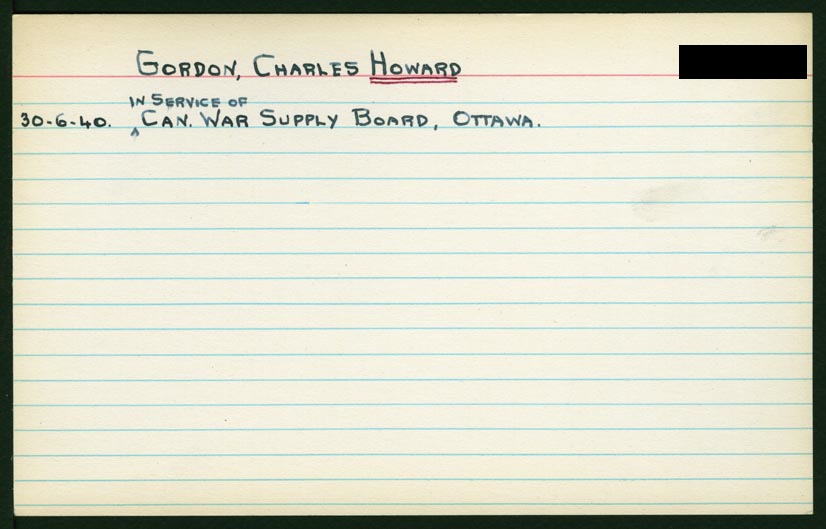 GORDON, CHARLES HOWARD
IN SERVICE OF
30-6-40. ^CAN. WAR SUPPLY BOARD, OTTAWA.